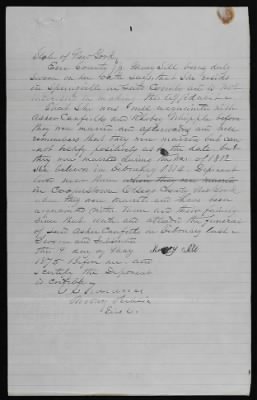 State of New York
Erie County ss Mary Sill being duly
sworn on her oath says that she resides
in Springville in said County and is not
interested in making this affidavit
That she was well acquainted with
Asher Canfield and Rhoby Whipple before
they were married and afterwards and well
remembers that they were married but can
not testify positively as to the date but
they were married during the War of 1812
She believes in February 1814 Deponent
in Cooperstown Otsego County New York
when they were married and have been
acquainted with them and their family
since that date and attended the funeral
of said Asher Canfield in February last
Sworn and Subscribed
the 9 day of May Mary Sill
1878 Before me and
I certify the Deponent
is credible
Notary Public
Erie Co.